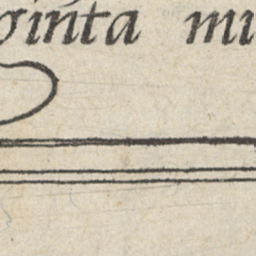 ginta mi